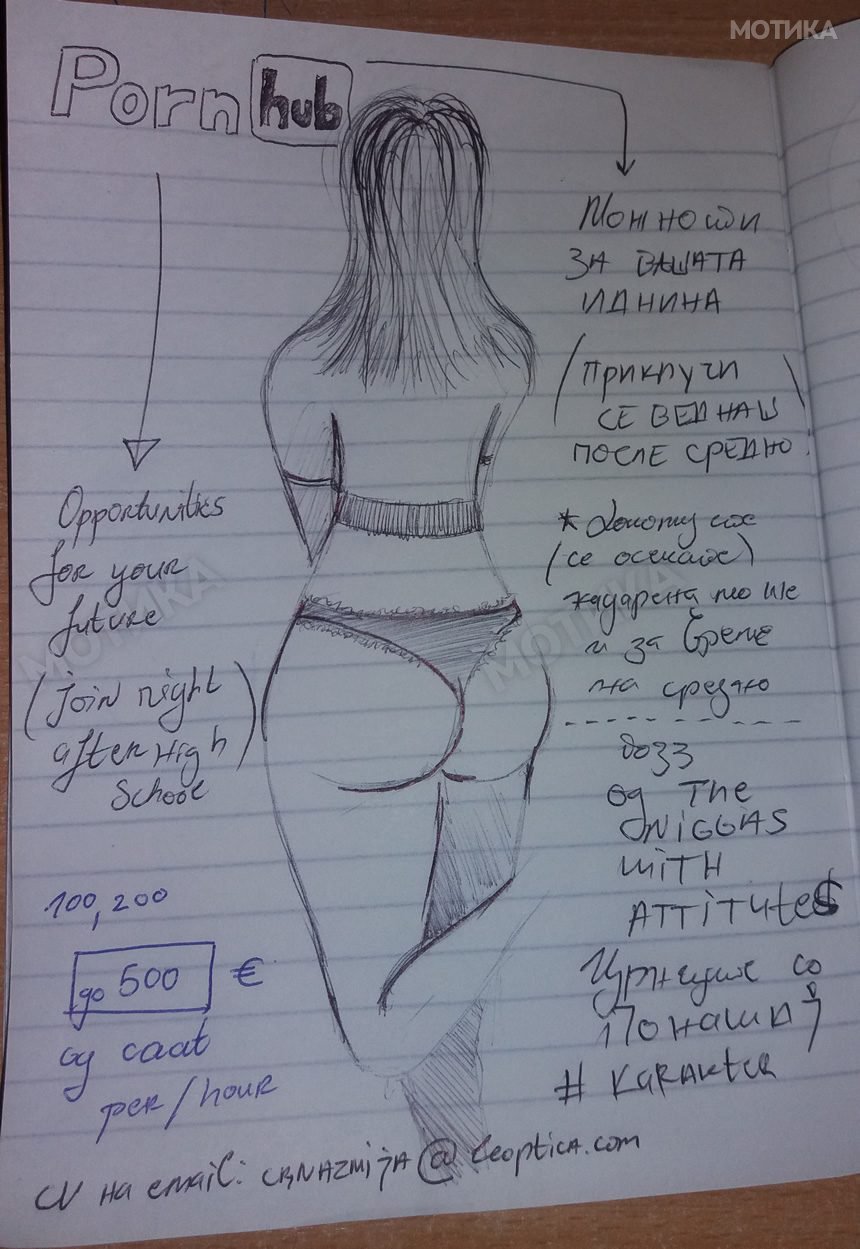 МОТИКА
Porn hub
Можности
ЗА ВАШАТА
ИДНИНА
(ПРИКЛУЧИ
СЕ ВЕДНАШ
ПОСЛЕ СРЕДНО)
Opportunities
for your
future
(join right
after High
School)
*
(се осекаш)
може
и за време
на средно
од THE
NIGGAS
WITH
ATTITUTE$
со
# KARAKTER
100, 200
до 500 €
од саат
per/hour
CV на email: CRNAZMIJA@leoptica.com
МОТИКА
МОТИКА